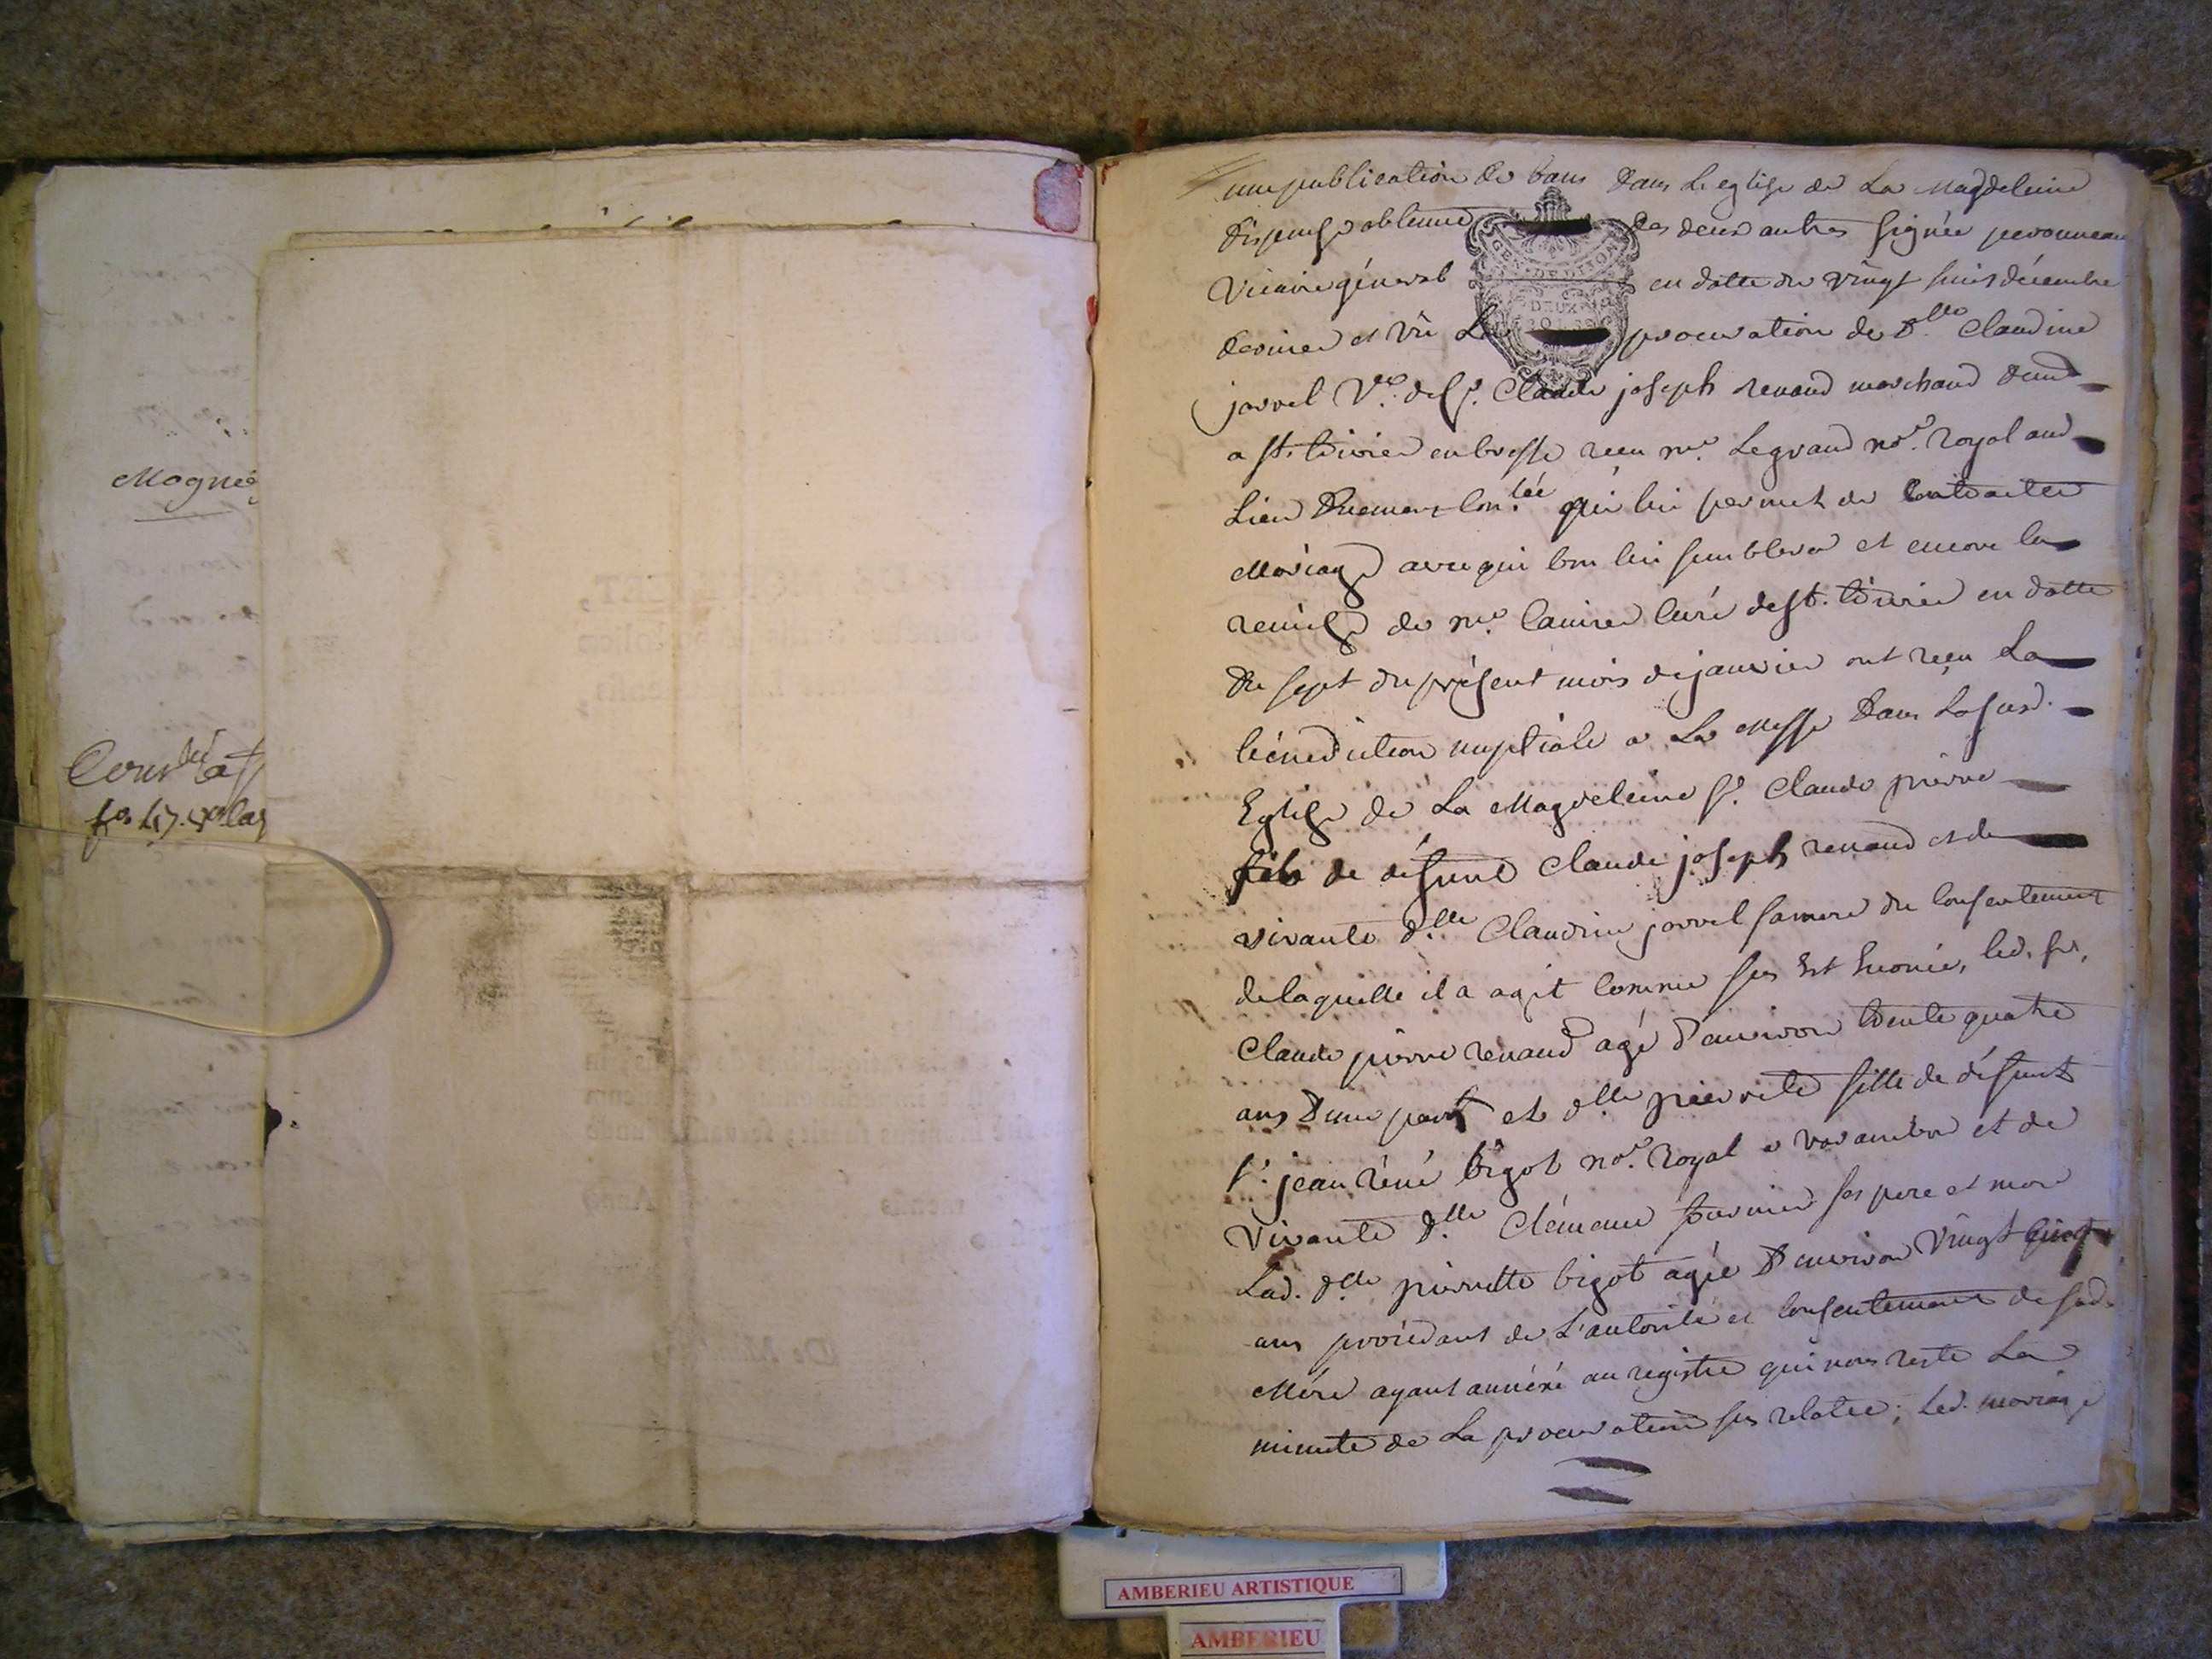 Magnié
Courtlée a
fo. 47.
une publication de bans dans Leglise de La Magdeleine
dispense obtenue des deux autres signée peronneau
Vicaire géneral en datte du vingt huit décembre
dernier et Vû La procuration de Dlle Claudine
jarrel Ve. de Sr. Claude joseph renaud marchand demt
a St. trivier en bresse recu me. Legrand nore. royal aud
Lieu duement Conlée qui lui permet de Contracter
Mariage avec qui bon lui semblera et encore la
remise de me. Curé de St. trivier en datte
du sept du présent mois de janvier ont reçu La
bénediction nuptiale a La Messe dans La susd.
Eglise de La Magdeleine Sr. Claude pierre
fils de défunt Claude joseph renaud et de
vivante dlle Claudine jarrel sa mere du Consentement
de laquelle il a agit Comme sus Est Enoncé, led. sr.
Claude pierre renaud agé d'environ trente quatre
ans d'une part et dlle pierrete fille de défunt
Sr. jean réné bigot nore. royal a varambon et de
Vivante dlle Clémence fournier ses pere et mere
Lad. dlle pierrette bigot agée d'environ Vingt
ans procédant de L'autorité et Consentement de sad.
Mére ayant annéxé au registre qui nous reste La
minute de La procuration sus relatée; Led. mariage
GEN. DE DIJON
DEUX
SOLS
AMBERIEU ARTISTIQUE
AMBERIEU